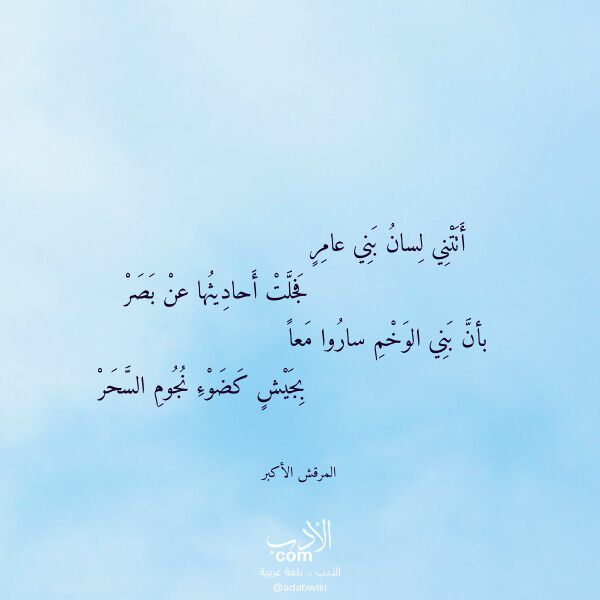 أَتَتْنِي لِسانُ بَنِي عامِرٍ
فَجَلَّتْ أَحادِيثُها عنْ بَصَرْ
بأنَّ بَنِي الوَخْمِ سارُوا مَعاً
بِجَيْشٍ كَضَوْءِ نُجُومِ السَّحَرْ
المرقش الأكبر
الأدب
com
الأدب .. بلغة عربية
@adabwiki